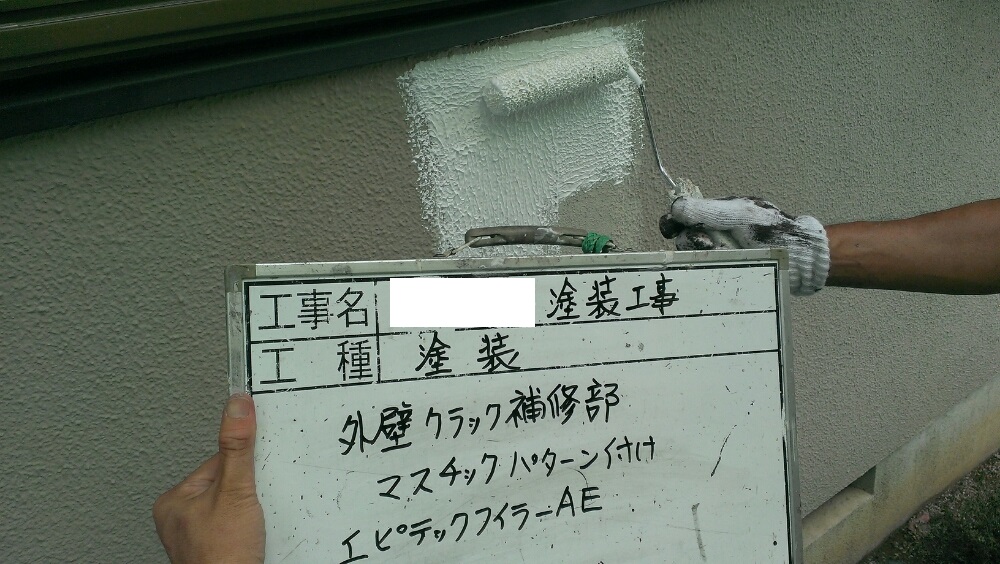 工事名 塗装工事
工種 塗装
外壁クラック補修部
マスチックパターン付け
エピテックフィラーAE